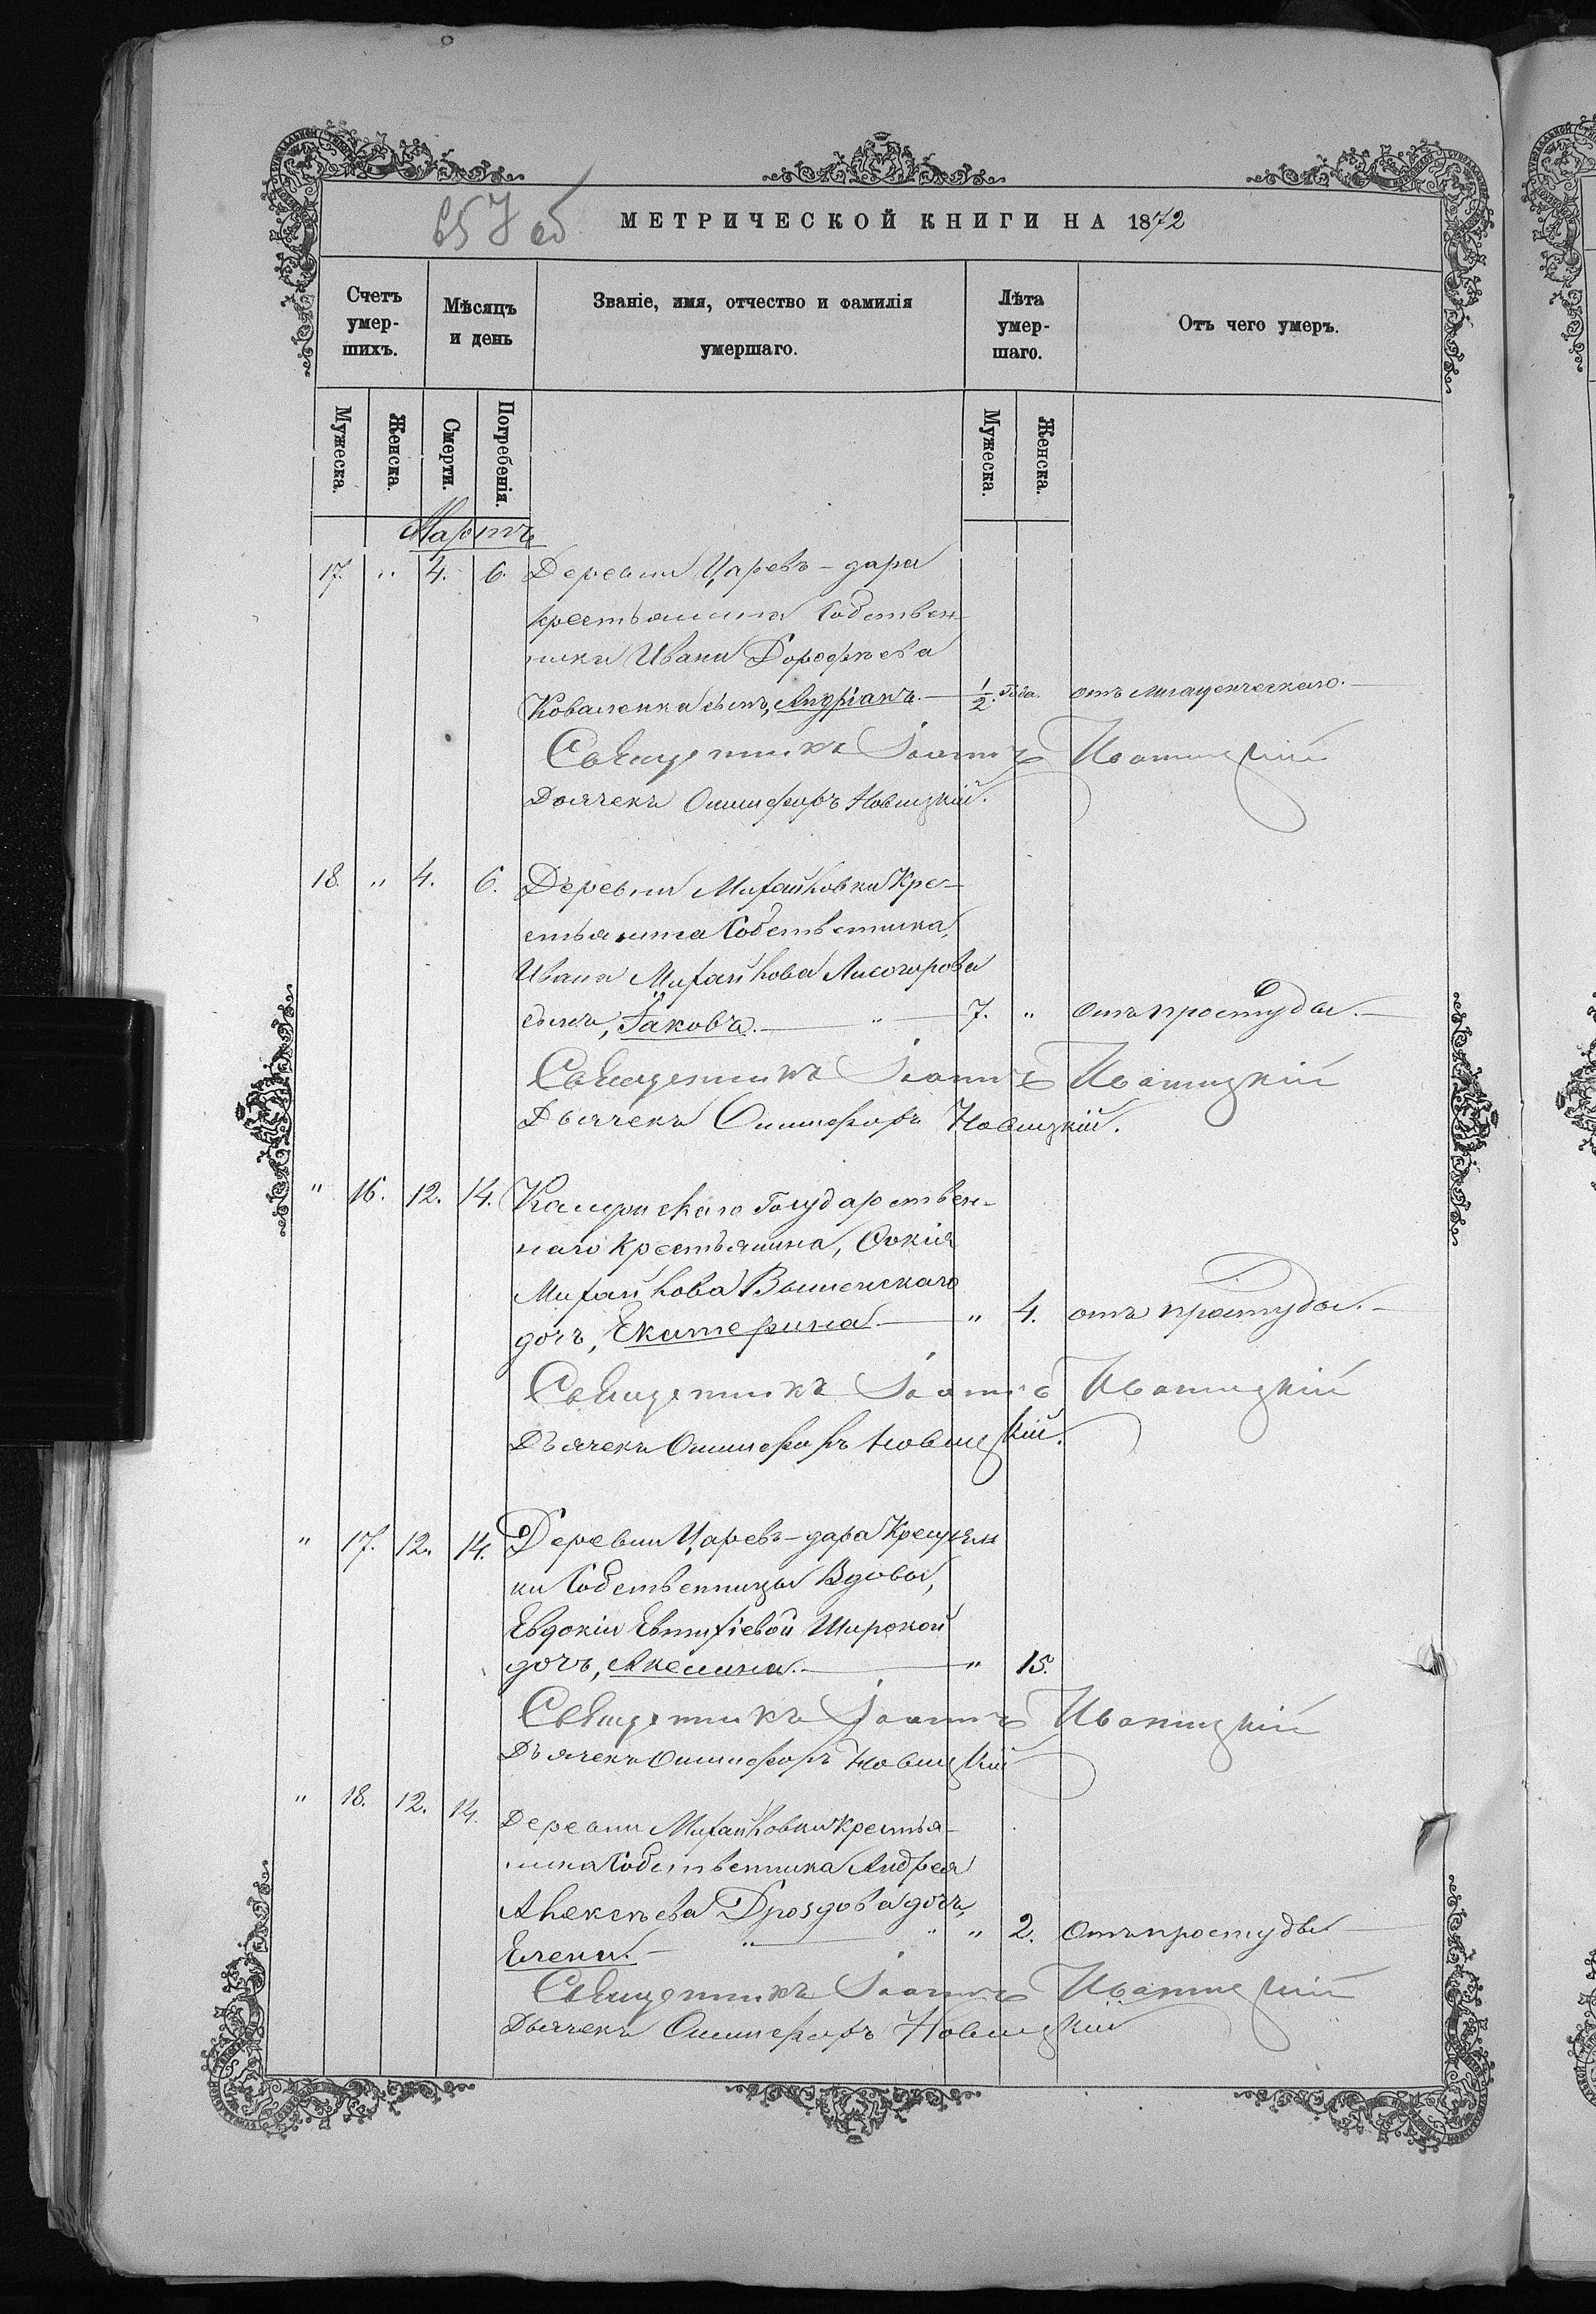 657 об
МЕТРИЧЕСКОЙ КНИГИ НА 1872
Счетъ умер-шихъ.
Мѣсяцъ и день
Званіе, имя, отчество и фамилія умершаго.
Лѣта умер-шаго.
Отъ чего умеръ.
Мужеска.
Женска.
Смерти.
Погребенія.
Мужеска.
Женска.
Мартъ
17. " 4. 6. Деревни Царевъ-дара
крестьянина Собствен-
ника Ивана Дорофѣева
Коваленка сынъ, Андріанъ. — 1/2 года отъ младенческаго. —
Священникъ Іоаннъ Иваницкій
Дьячекъ Онисифоръ Новицкій.
18. " 4. 6. Деревни Михайловки Кре-
стьянина Собственника,
Ивана Михайлова Лисогорова
сынъ, Іаковъ. — " — 7. " отъ простуды. —
Священникъ Іоаннъ Иваницкій
Дьячекъ Онисифоръ Новицкій.
" 16. 12. 14. Государствен-
наго Крестьянина,
Михайлова Вышенскаго
дочь, Екатерина — " 4. отъ простуды. —
Священникъ Іоаннъ Иваницкій
Дьячекъ Онисифоръ Новицкій.
" 17. 12. 14. Деревни Царевъ-дара
ки Собственницы Вдовы,
Евдокіи Евтихіевой Широкой
дочь, Акелина. — " 15.
Священникъ Іоаннъ Иваницкій
Дьячекъ Онисифоръ Новицкій
" 18. 12. 14. Деревни Михайловки Крестья-
нина Собственника Андрея
Алексѣева Дроздова дочь,
Елена. — " — " " 2. Отъ простуды —
Священникъ Іоаннъ Иваницкій
Дьячекъ Онисифоръ Новицкій